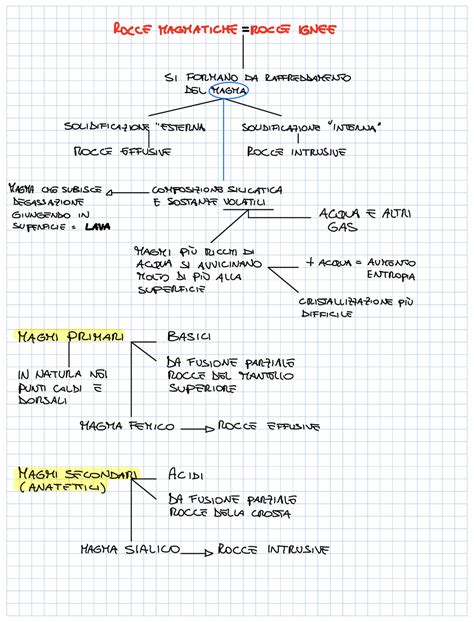 ROCCE MAGMATICHE = ROCCE IGNEE
SI FORMANO DA RAFFREDDAMENTO
DEL MAGMA
SOLIDIFICAZIONE "ESTERNA
SOLIDIFICAZIONE "INTERNA"
ROCCE EFFUSIVE
ROCCE INTRUSIVE
MAGMA CHE SUBISCE
DEGASSAZIONE
GIUNGENDO IN
SUPERFICIE = LAVA
COMPOSIZIONE SILICATICA
E SOSTANZE VOLATILI
ACQUA E ALTRI
GAS
MAGMI PIÙ RICCHI DI
ACQUA SI AVVICINANO
MOLTO DI PIÙ ALLA
SUPERFICIE
+ ACQUA = AUMENTO
ENTROPIA
CRISTALLIZZAZIONE PIÙ
DIFFICILE
MAGMI PRIMARI
BASICI
IN NATURA NEI
PUNTI CALDI E
DORSALI
DA FUSIONE PARZIALE
ROCCE DEL MANTELLO
SUPERIORE
MAGMA FEMICO → ROCCE EFFUSIVE
MAGMI SECONDARI
(ANATETTICI)
ACIDI
DA FUSIONE PARZIALE
ROCCE DELLA CROSTA
MAGMA SIALICO → ROCCE INTRUSIVE